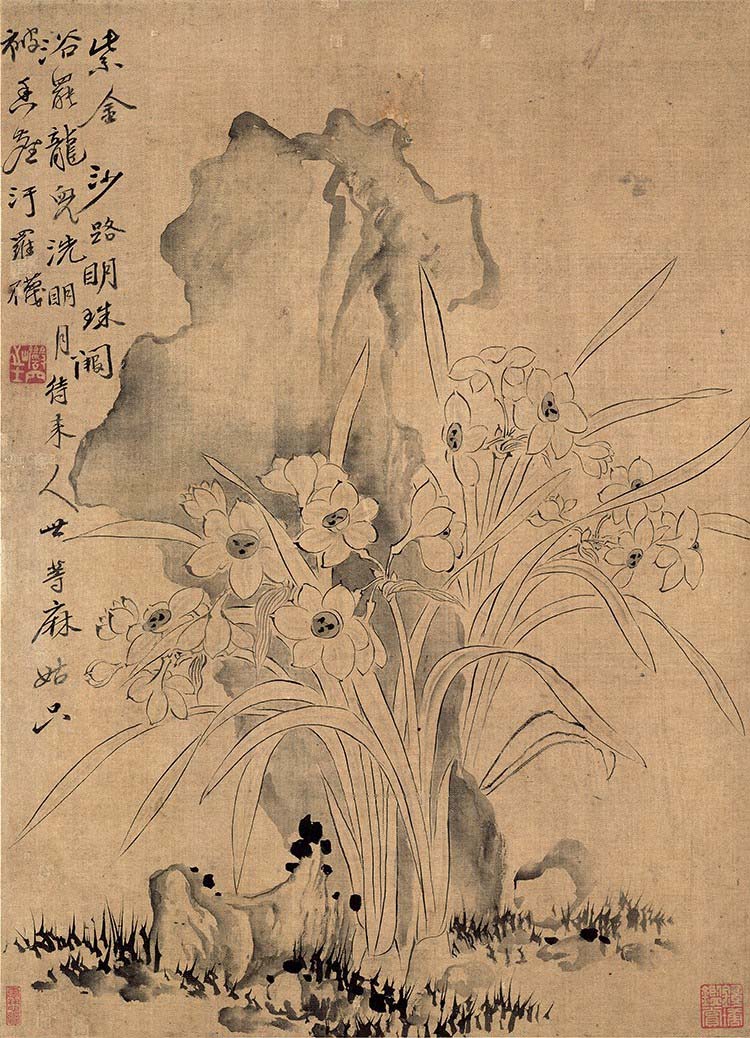 紫金沙路明珠闕
浴罷龍兒洗明月待来人世等麻姑只
被香塵汙羅襪